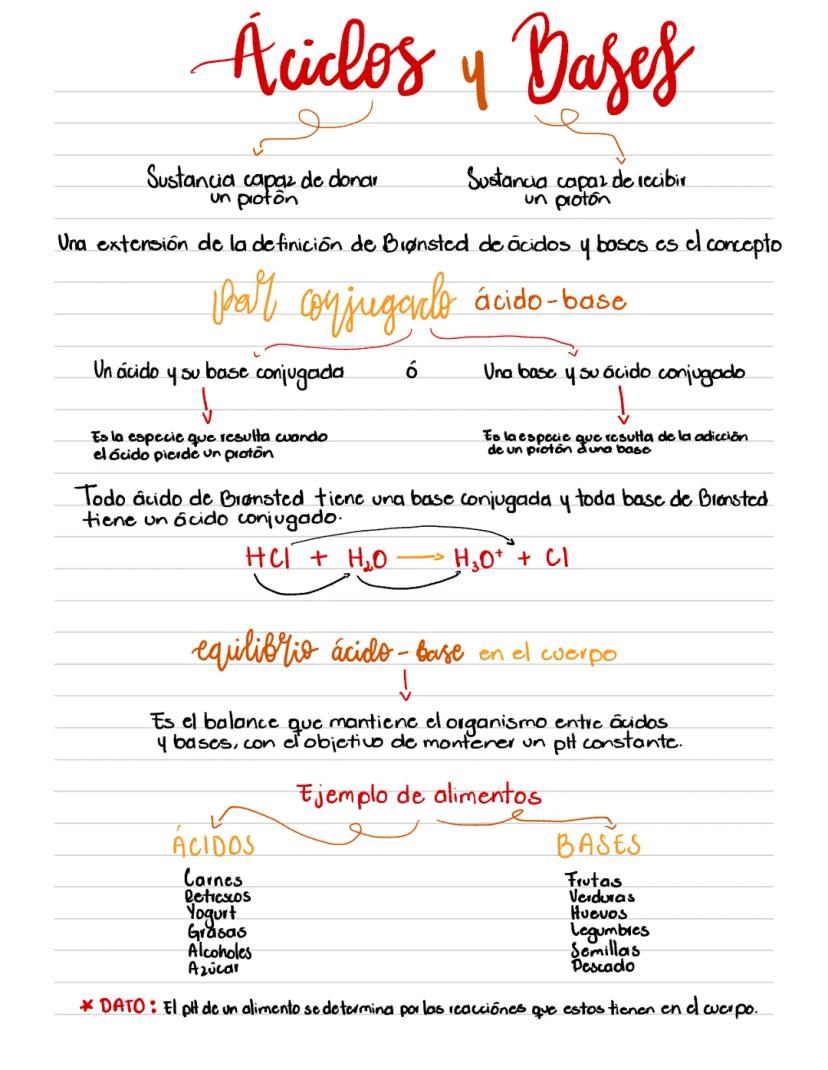 Ácidos y Bases
Sustancia capaz de donar
un protón
Sustancia capaz de recibir
un protón
Una extensión de la definición de Brønsted de ácidos y bases es el concepto
par conjugado ácido-base
Un ácido y su base conjugada ó Una base y su ácido conjugado
Es la especie que resulta cuando
el ácido pierde un protón
Es la especie que resulta de la adicción
de un protón a una base
Todo ácido de Brønsted tiene una base conjugada y toda base de Brønsted
tiene un ácido conjugado.
HCl + H₂O → H₃O⁺ + Cl
equilibrio ácido-base en el cuerpo
Es el balance que mantiene el organismo entre ácidos
y bases, con el objetivo de mantener un pH constante.
Ejemplo de alimentos
ÁCIDOS
Carnes
Refrescos
Yogurt
Grasas
Alcoholes
Azúcar
BASES
Frutas
Verduras
Huevos
Legumbres
Semillas
Pescado
* DATO: El pH de un alimento se determina por las reacciónes que estos tienen en el cuerpo.